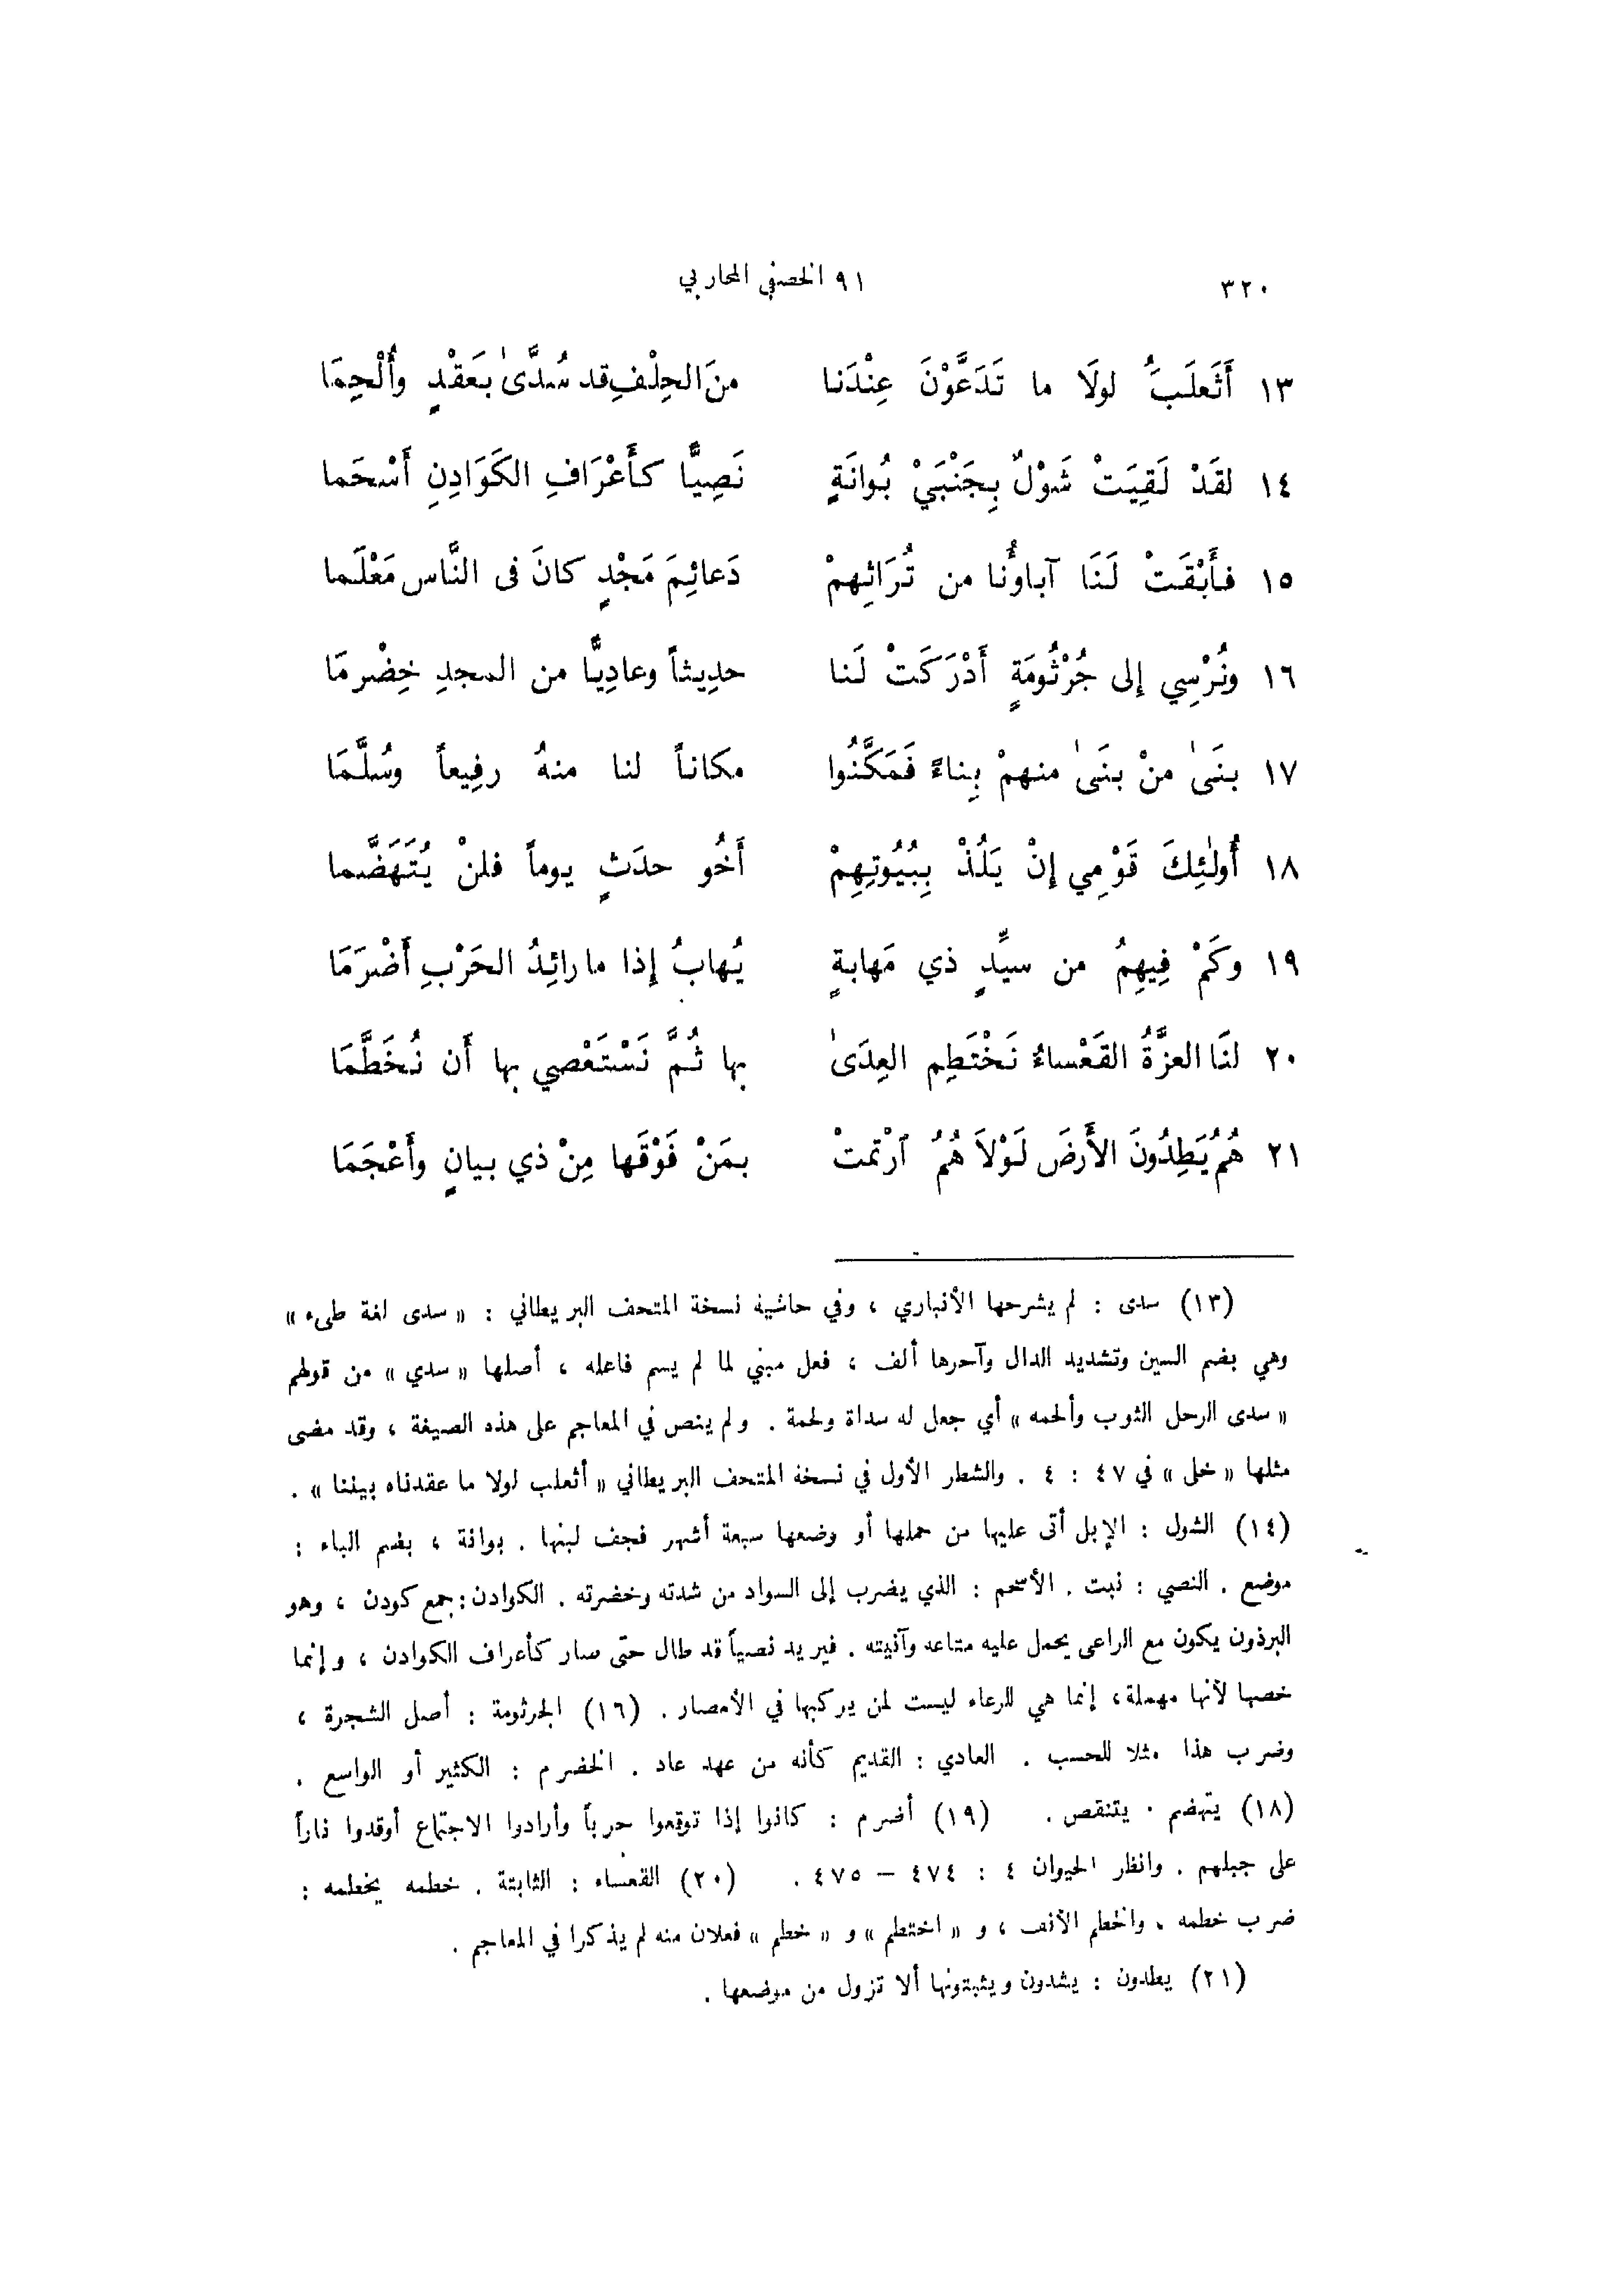 ٣٢٠ ٩١ الخصفي المحاربي
١٣ أَثَعلَبَُ لولَا ما تَدَعَّوْنَ عِنْدَنا منَ الحِلْفِ قد سُدَّىٰ بعَقْدٍ وأُلْحِمَا
١٤ لقَدْ لَقِيَتْ شَوْلٌ بِجَنْبَيْ بُوانَةٍ نَصِيًّا كأَعْرَافِ الكَوَادِنِ أَسْحَما
١٥ فأَبْقَتْ لَنَا آباوُنا من تُرَاثِهِمْ دَعائِمَ مَجْدٍ كانَ فى النَّاس مَعْلَما
١٦ ونُرْسِي إلى جُرْثُومَةٍ أَدْرَكَتْ لَنا حدِيثاً وعادِيًّا من المجدِ خِضْرِمَا
١٧ بنَىٰ منْ بنَىٰ منهمْ بِناءً فَمَكَّنُوا مكاناً لنا منهُ رفِيعاً وسُلَّمَا
١٨ أُولٰئِكَ قَوْمِي إنْ يَلُذْ بِبُيُوتِهِمْ أَخُو حدَثٍ يوماً فلنْ يُتَهَضَّما
١٩ وكَمْ فِيهِمُ من سيِّدٍ ذي مَهابةٍ يُهابُ إذا ما رائِدُ الحَرْبِ أَضْرَمَا
٢٠ لنَا العزَّةُ القَعْساءُ نَخْتَطِم العِدَىٰ بها ثُمَّ نَسْتَعْصي بها أَن نُخَطَّمَا
٢١ هُمُ يَطِدُونَ الأَرضَ لَوْلاَ هُمُ ٱرْتمتْ بمَنْ فَوْقَها مِنْ ذي بيانٍ وأَعْجَمَا
(١٣) سدى : لم يشرحها الأنباري ، وفي حاشية نسخة المتحف البريطاني : « سدى لغة طيء »
وهي بضم السين وتشديد الدال وآخرها ألف ، فعل مبني لما لم يسم فاعله ، أصلها « سدي » من قولهم
« سدى الرجل الثوب وألحمه » أي جعل له سداة ولحمة . ولم ينص في المعاجم على هذه الصيغة ، وقد مضى
مثلها « خلى » في ٤٧ : ٤ . والشطر الأول في نسخة المتحف البريطاني « أثعلب لولا ما عقدناه بيننا » .
(١٤) الشول : الإبل أتى عليها من حملها أو وضعها سبعة أشهر فجف لبنها . بوانة ، بضم الباء :
موضع . النصي : نبت . الأسحم : الذي يضرب إلى السواد من شدته وخضرته . الكوادن : جمع كودن ، وهو
البرذون يكون مع الراعى يحمل عليه متاعه وآنيته . فيريد نصياً قد طال حتى صار كأعراف الكوادن ، وإنما
خصها لأنها مهملة، إنما هي للرعاء ليست لمن يركبها في الأمصار . (١٦) الجرثومة : أصل الشجرة ،
وضرب هذا مثلا للحسب . العادي : القديم كأنه من عهد عاد . الخضرم : الكثير أو الواسع .
(١٨) يتهضم . يتنقص . (١٩) أضرم : كانوا إذا توقعوا حرباً وأرادوا الاجتماع أوقدوا ناراً
على جبلهم . وانظر الحيوان ٤ : ٤٧٤ – ٤٧٥ . (٢٠) القعساء : الثابتة . خطمه يخطمه :
ضرب خطمه . والخطم الأنف ، و « اختطم » و « خطم » فعلان منه لم يذكرا في المعاجم .
(٢١) يطدون : يشدون ويثبتونها ألا تزول من موضعها .